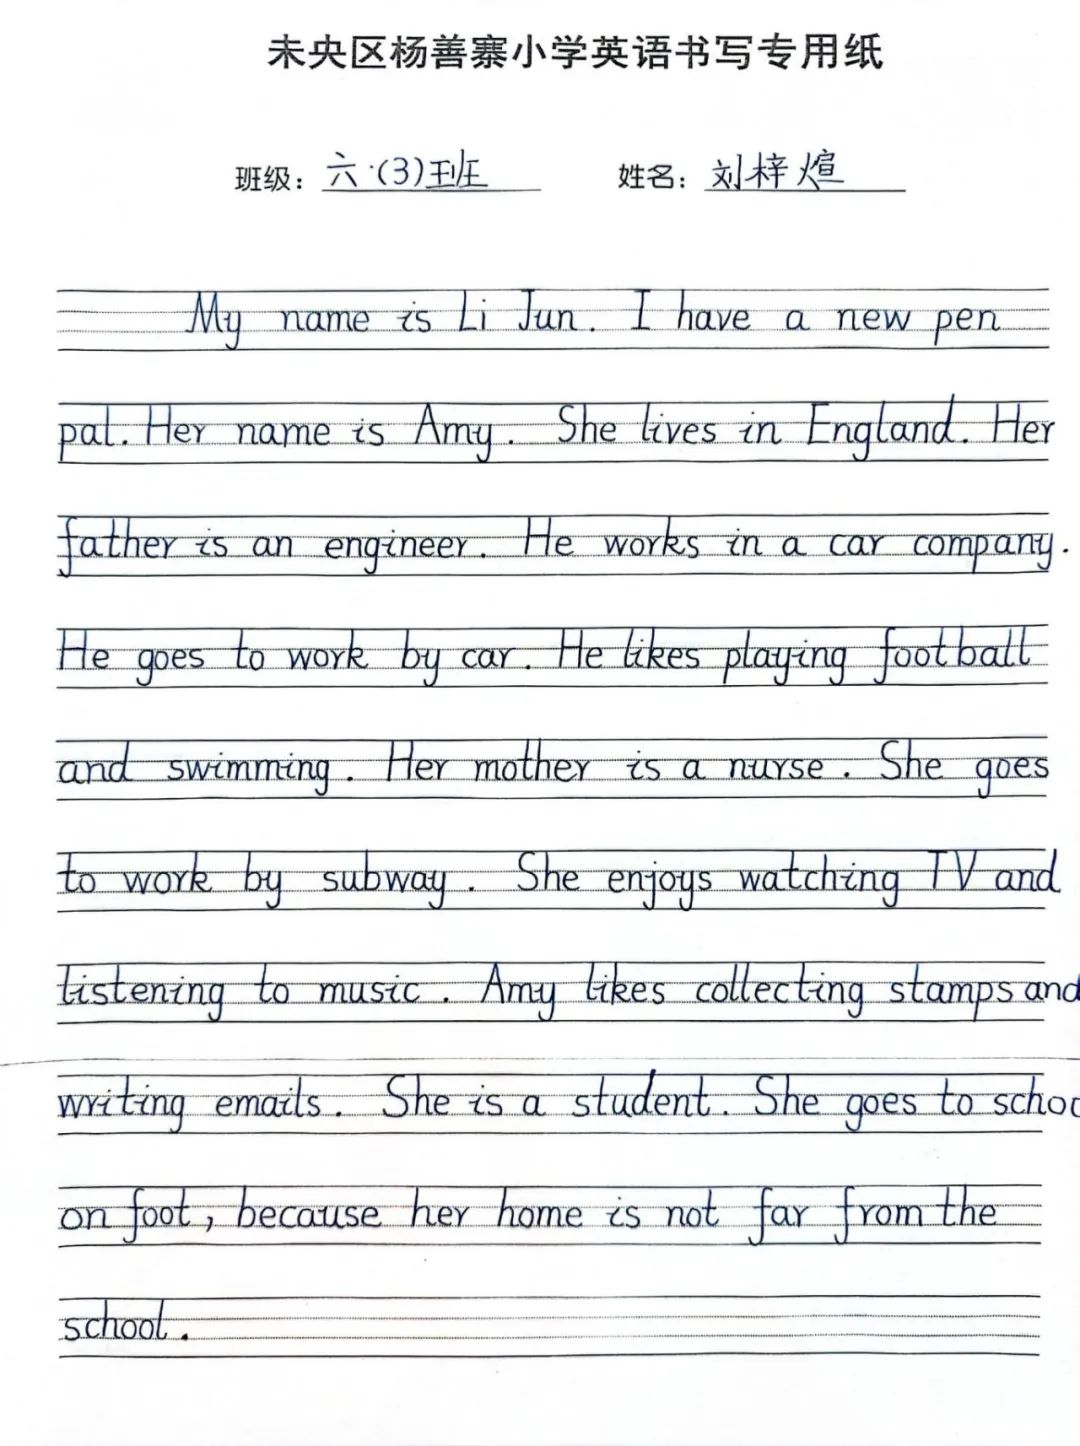 未央区杨善寨小学英语书写专用纸
班级：六·(3)班 姓名：刘梓煊
My name is Li Jun. I have a new pen
pal. Her name is Amy. She lives in England. Her
father is an engineer. He works in a car company.
He goes to work by car. He likes playing football
and swimming. Her mother is a nurse. She goes
to work by subway. She enjoys watching TV and
listening to music. Amy likes collecting stamps and
writing emails. She is a student. She goes to schoo
on foot, because her home is not far from the
school.